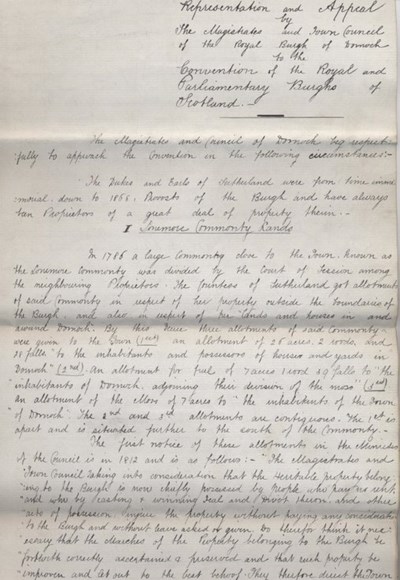 Representation and Appeal
by
The Magistrates and Town Council
of the Royal Burgh of Dornoch
to the
Convention of the Royal and
Parliamentary Burghs of
Scotland. -
The Magistrates and Council of Dornoch beg respect-
fully to approach the Convention in the following circumstances:-
The Dukes and Earls of Sutherland were from time imme
morial, down to 1855, Provosts of the Burgh and have always
been Proprietors of a great deal of property therein. -
I Lonemore Commonty Lands
In 1786 a large Commonty close to the Town, known as
the Lonemore Commonty was divided by the Court of Session among
the neighbouring Proprietors. The Countess of Sutherland got allotments
of said Commonty in respect of her property outside the boundaries of
the Burgh and also in respect of her lands and houses in and
around Dornoch. By this three allotments of said Commonty
were given to the Town (1st) an allotment of 28 acres, 2 roods, and
falls "to the inhabitants and possessors of houses and yards in
Dornoch" (2nd) An allotment for fuel of 7 acres 1 rood 29 falls to "the
inhabitants of Dornoch adjoining their division of the moss" (3rd)
an allotment of the Moss of 7 acres to "the inhabitants of the Town
of Dornoch". The 2nd and 3rd allotments are contiguous. The 1st is
apart and is situated further to the south of the Commonty. -
The first notice of these allotments in the Minutes
of the Council is in 1812 and is as follows:- "The Magistrates and
Town Council taking into consideration that the Heritable property belong
ing to the Burgh is now chiefly possessed by People who have no right
and who by casting & winning Feal and Divot them and other
acts of possession, injure the property without paying any consideration
to the Burgh and without leave asked or given Do therefore think it nec-
essary that the Marches of the Property belonging to the Burgh be
forthwith correctly ascertained & preserved and that such property be
improven and let out to the best behoof. They therefore direct the Town